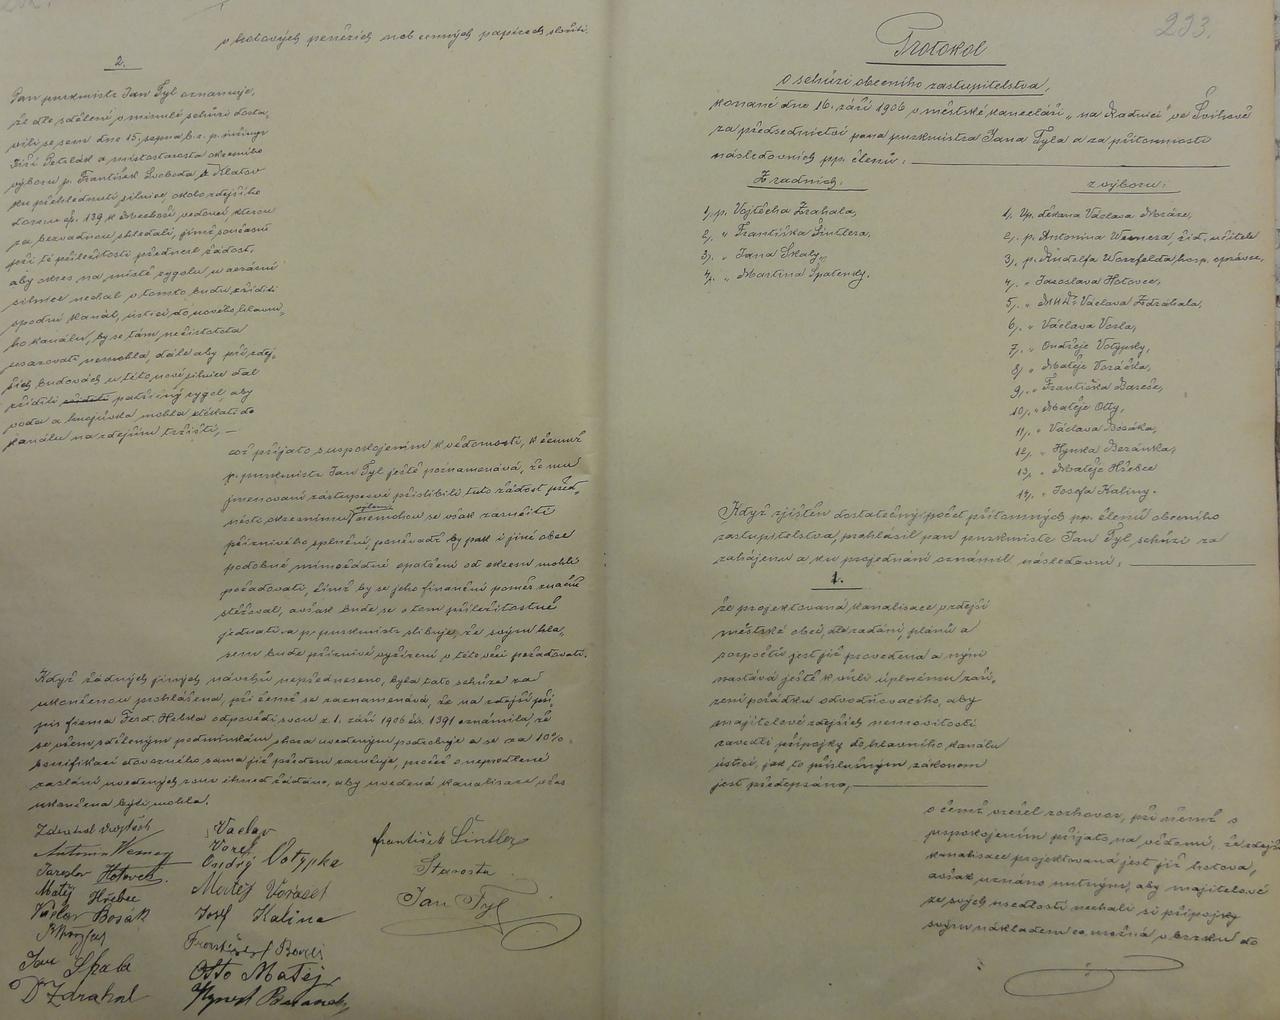 v hotových penězích neb cenných papírech složiti.
2.
Pan purkmistr Jan Tyl oznamuje,
že dle sdělení v minulé schůzi dosta-
vili se sem dne 15. srpna b. r. p. inženýr
Jiří Petrlák a místostarosta okresního
výboru p. František Svoboda z Klatov
ku přehlédnutí silnice, okolo zdejšího
domu čp. 139 k vedoucí, kterou
za bezvadnou shledali, jimž současně
při té příležitosti přednesl žádost,
aby okres na místě rygolu u erární
silnice nechal v tomto bodu zříditi
spodní kanál, ústící do nového hlavní-
ho kanálu, by se tam nečistota
usazovati nemohla, dále aby při zdej-
ších budovách u této nové silnice dal
zříditi patřičný rygol, aby
voda a hnojůvka mohla stékati do
kanálu na zdejším tržišti, —
což přijato s uspokojením k vědomosti, k čemuž
p. purkmistr Jan Tyl ještě poznamenává, že mu
jmenovaní zástupcové přislíbili tuto žádost před-
nésti okresnímu výboru nemohou se však zaručiti
příznivého splnění, poněvadž by pak i jiné obce
podobné mimořádné opatření od okresu mohli
požadovati, čímž by se jeho finanční poměr značně
stěžoval, avšak bude se o tom příležitostně
jednati a p. purkmistr slibuje, že svým hla-
sem bude příznivé vyřízení v této věci požadovati.
Když žádných jiných návrhů nepředneseno, byla tato schůze za
ukončenou prohlášena, při čemž se zaznamenává, že na zdejší pří-
pis firma Ferd. Hrbka odpovědí svou z 1. září 1906 čís. 1391 oznámila, že
se všem sděleným podmínkám shora uvedeným podrobuje a se za 10%
bonifikaci dovozného sama již předem zaručuje, pročež o neprodlené
zaslání uvedených rour ihned žádáno, aby uvedená kanalisace včas
ukončena býti mohla.
Zdrahal Vojtěch
Antonín Werner
Jaroslav Hotovec
Matěj Hřebec
Václav Bosák
Jan Skala
Dr Zdrahal
Václav
Vorel
Ondřej Votypka
Matěj Voráček
Josef Kalina
František Bareš
Otto Matěj
Hynek Beránek
František Šintler
Starosta
Jan Tyl
293.
Protokol
o schůzi obecního zastupitelstva,
konané dne 16. září 1906 v městské kanceláři „na Radnici" ve Švihově
za předsednictví pana purkmistra Jana Tyla a za přítomnosti
následovních pp. členů:
Z radních:
1., p. Vojtěcha Zdrahala,
2., " Františka Šintlera,
3., " Jana Skaly,
4., " Martina Špatenky.
z výboru:
1., Vp. děkana Václava Mráze,
2., p. Antonína Wernera, říd. učitele
3., p. Rudolfa Worzfelda, hosp. správce,
4., " Jaroslava Hotovce,
5., " MUDr Václava Zdrahala,
6., " Václava Vorla,
7., " Ondřeje Votypky,
8., " Matěje Voráčka,
9., " Františka Bareše,
10., " Matěje Otty,
11., " Václava Bosáka,
12., " Hynka Beránka,
13., " Matěje Hřebce
14., " Josefa Kaliny.
Když zjištěn dostatečný počet přítomných pp. členů obecního
zastupitelstva, prohlásil pan purkmistr Jan Tyl schůzi za
zahájenu a ku projednání oznámil následovní:
1.
že projektovaná kanalisace v zdejší
městské obci, dle zadání, plánů a
rozpočtů jest již provedena a nyní
nastává ještě k vůli úplnému zaří-
zení pořádku odvodňovacího, aby
majitelové zdejších nemovitostí
zavedli přípojky do hlavního kanálu
ústící, jak to příslušným zákonem
jest předepsáno,
o čemž vzešel rozhovor, při němž s
uspokojením přijato na vědomí, že zdejší
kanalisace projektovaná jest již hotova,
avšak uznáno nutným, aby majitelové
ze svých usedlostí nechali si přípojky
svým nákladem co možná v brzku do